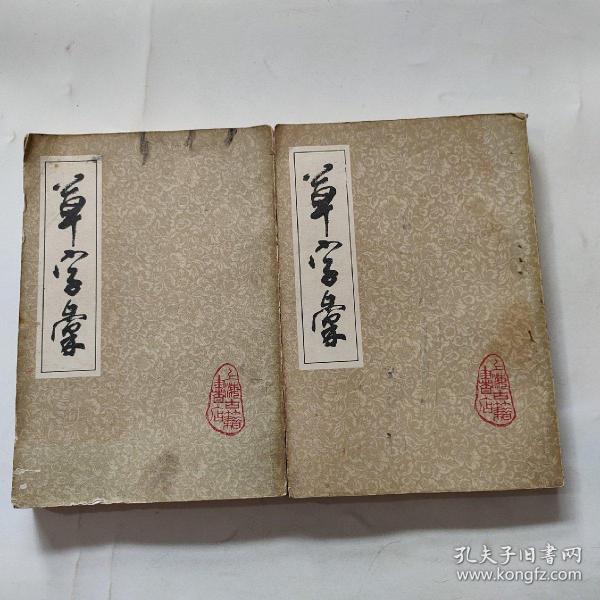 草字彙
上海古籍書店
草字彙
上海古籍書店
孔夫子旧书网
www.kongfz.com